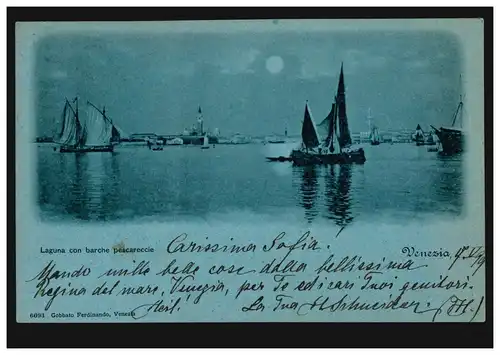 Laguna con barche pescareccie
Carissima Sofia!
Venezia
Mando mille belle cose dalla bellissima
Regina del mare, Venezia, per Te ed i cari Tuoi genitori.
La Tua H Schneider. (H.)
6091 Gobbato Ferdinando, Venezia